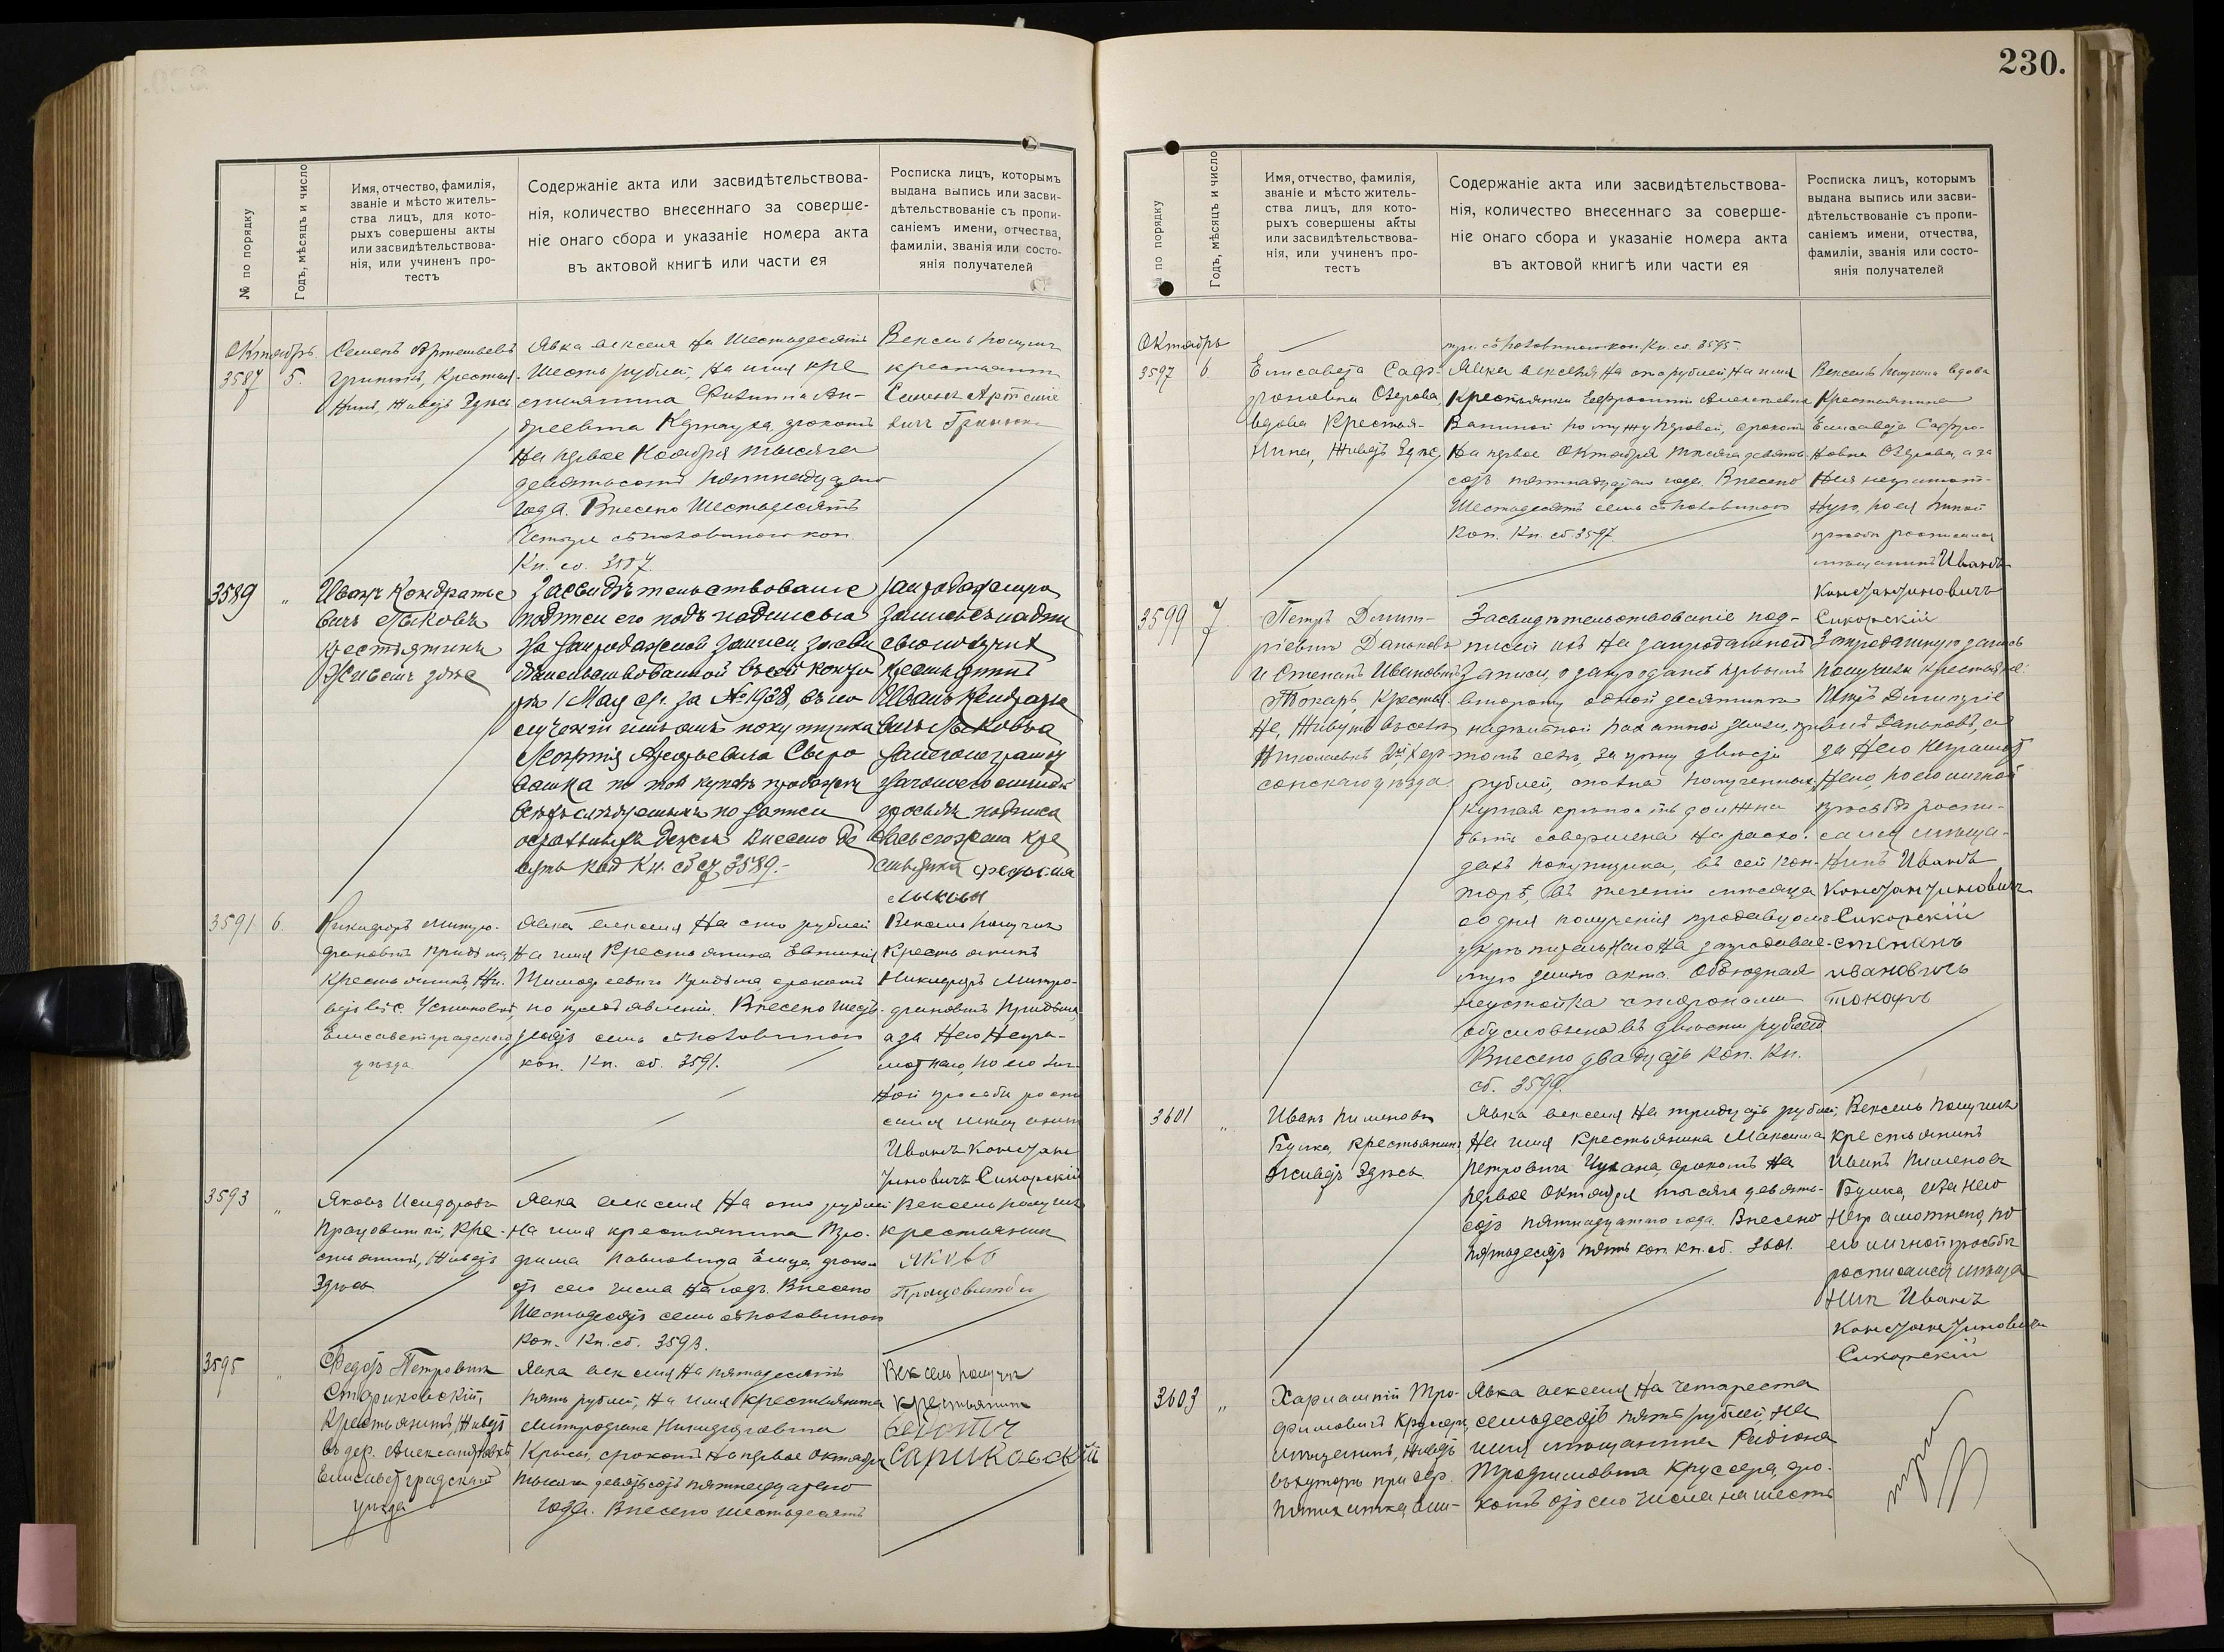 230.
№ по порядку
Годъ, мѣсяцъ и число
Имя, отчество, фамилія,
званіе и мѣсто житель-
ства лицъ, для кото-
рыхъ совершены акты
или засвидѣтельствова-
нія, или учиненъ про-
тестъ
Содержаніе акта или засвидѣтельствова-
нія, количество внесеннаго за соверше-
ніе онаго сбора и указаніе номера акта
въ актовой книгѣ или части ея
Росписка лицъ, которымъ
выдана выпись или засви-
дѣтельствованіе съ пропи-
саніемъ имени, отчества,
фамиліи, званія или состо-
янія получателей
Октябрь
3587
5.
Семенъ Артемьевъ
крестья-
нинъ, живетъ здѣсь
Явка векселя на шестьдесятъ
шесть рублей, на имя кре
стьянина Филиппа Ан-
дреевича срокомъ
на первое Ноября тысяча
девятьсотъ пятнадцатаго
года. Внесено шестьдесятъ
четыре съ половиною коп.
Кн. сб. 3587
Вексель получилъ
крестьянинъ
Семенъ Артеміе
вичъ
3589
"
Иванъ Кондратье
вичъ Лысковъ
крестьянинъ
живетъ здѣсь
Засвидѣтельствованіе
подписи его подъ надписью
на запродажной записи, засви
дѣтельствованной въ сей конто
рѣ 1 Мая с/г. за № 1928, въ по
по той купчей продажѣ
по записи
Внесено де
сять коп Кн. сб 3589.-
запродажную
запись съ надпи
сью получилъ
крестьянинъ
Иванъ Кондратье
вичъ Лысковъ а
3591
6.
Никифоръ Митро-
фановичъ
крестьянинъ, жи-
ветъ въ с. Устиновкѣ,
Елисаветградскаго
уѣзда
Явка векселя на сто рублей
на имя крестьянина Евтихія
Тимофеевича срокомъ
по предъявленіи. Внесено шесть-
десятъ семь съ половиною
коп. Кн. сб. 3591.
Вексель получилъ
крестьянинъ
Никифоръ Митро-
фановичъ
а за него негра-
мотнаго, по его лич
ной просьбѣ роспи
сался мѣщанинъ
Иванъ Констан
тиновичъ Сикорскій
3593
"
Яковъ Исидоровъ
Працовитый, кре-
стьянинъ, живетъ
здѣсь
Явка векселя на сто рублей
на имя крестьянина Тро-
фима Павловича срокомъ
отъ сего числа на годъ. Внесено
шестьдесятъ семь съ половиною
коп. Кн. сб. 3593.
Вексель получилъ
крестьянинъ
Яковъ
Працовитый
3595
"
Федоръ Петровичъ
Стариковскій,
крестьянинъ, живетъ
въ дер. Александровкѣ
Елисаветградскаго
уѣзда
Явка векселя на пятьдесятъ
пять рублей, на имя крестьянина
Митрофана Никифоровича
срокомъ на первое Октября
тысяча девятьсотъ пятнадцатаго
года. Внесено шестьдесятъ
Вексель получилъ
крестьянинъ
Сариковскій
№ по порядку
Годъ, мѣсяцъ и число
Имя, отчество, фамилія,
званіе и мѣсто житель-
ства лицъ, для кото-
рыхъ совершены акты
или засвидѣтельствова-
нія, или учиненъ про-
тестъ
Содержаніе акта или засвидѣтельствова-
нія, количество внесеннаго за соверше-
ніе онаго сбора и указаніе номера акта
въ актовой книгѣ или части ея
Росписка лицъ, которымъ
выдана выпись или засви-
дѣтельствованіе съ пропи-
саніемъ имени, отчества,
фамиліи, званія или состо-
янія получателей
Октябрь
три съ половиною коп. Кн. сб. 3595.
3597
6
Елисавета Саф-
роновна Озерова,
вдова крестья-
нина, живетъ здѣсь
Явка векселя на сто рублей, на имя
крестьянки Евфросиніи Алексѣевны
по мужу первой, срокомъ
на первое Октября тысяча девять-
сотъ пятнадцатаго года. Внесено
шестьдесятъ семь съ половиною
коп. Кн. сб. 3597
Вексель получила вдова
крестьянина
Елисавета Сафро-
новна Озерова, а за
нея неграмот-
ную, по ея личной
просьбѣ росписался
мѣщанинъ Иванъ
Константиновичъ
Сикорскій
3599
7.
Петръ Дмит-
ріевичъ Даньковъ
и Степанъ Ивановичъ
Токарь, крестья-
не, живутъ въ селѣ
Николаевкѣ 2й Хер-
сонскаго уѣзда
Засвидѣтельствованіе под-
писей ихъ на запродажной
записи, о запродажѣ первымъ
второму одной десятины
надѣльной пахатной земли, при
томъ селѣ, за цѣну двѣсти
рублей, сполна полученныхъ.
Купчая крѣпость должна
быть совершена на расхо-
дахъ покупщика, въ сей кон-
торѣ, въ теченіи мѣсяца
со дня полученія продавцомъ
укрѣпительнаго на запродавае-
мую землю акта. Обоюдная
неустойка сторонами
обусловлена въ двѣсти рублей.
Внесено двадцать коп. Кн.
сб. 3599.
Запродажную запись
получили крестьяне:
Петръ Дмитріе
вичъ Даньковъ, а
за него неграмот
наго, по его личной
просьбѣ роспи-
сался мѣща-
нинъ Иванъ
Константиновичъ
Сикорскій
степанъ
ивановичъ
токарь
3601
"
Иванъ Пименовъ
Бушка, крестьянинъ
живетъ здѣсь
Явка векселя на тридцать рублей,
на имя крестьянина Максима
Петровича срокомъ на
первое Октября тысяча девять-
сотъ пятнадцатаго года. Внесено
пятьдесятъ пять коп Кн. сб. 3601.
Вексель получилъ
крестьянинъ
Иванъ Пименовъ
Бушка, а за него
неграмотнаго, по
его личной просьбѣ
росписался мѣща
нинъ Иванъ
Константиновичъ
Сикорскій
3603
"
Харлампій Тро-
фимовичъ Круссеръ,
мѣщанинъ, живетъ
въ хуторѣ при дер.
Явка векселя на четыреста
семьдесятъ пять рублей, на
имя мѣщанина Родіона
Трофимовича Круссера, сро-
комъ отъ сего числа на шесть